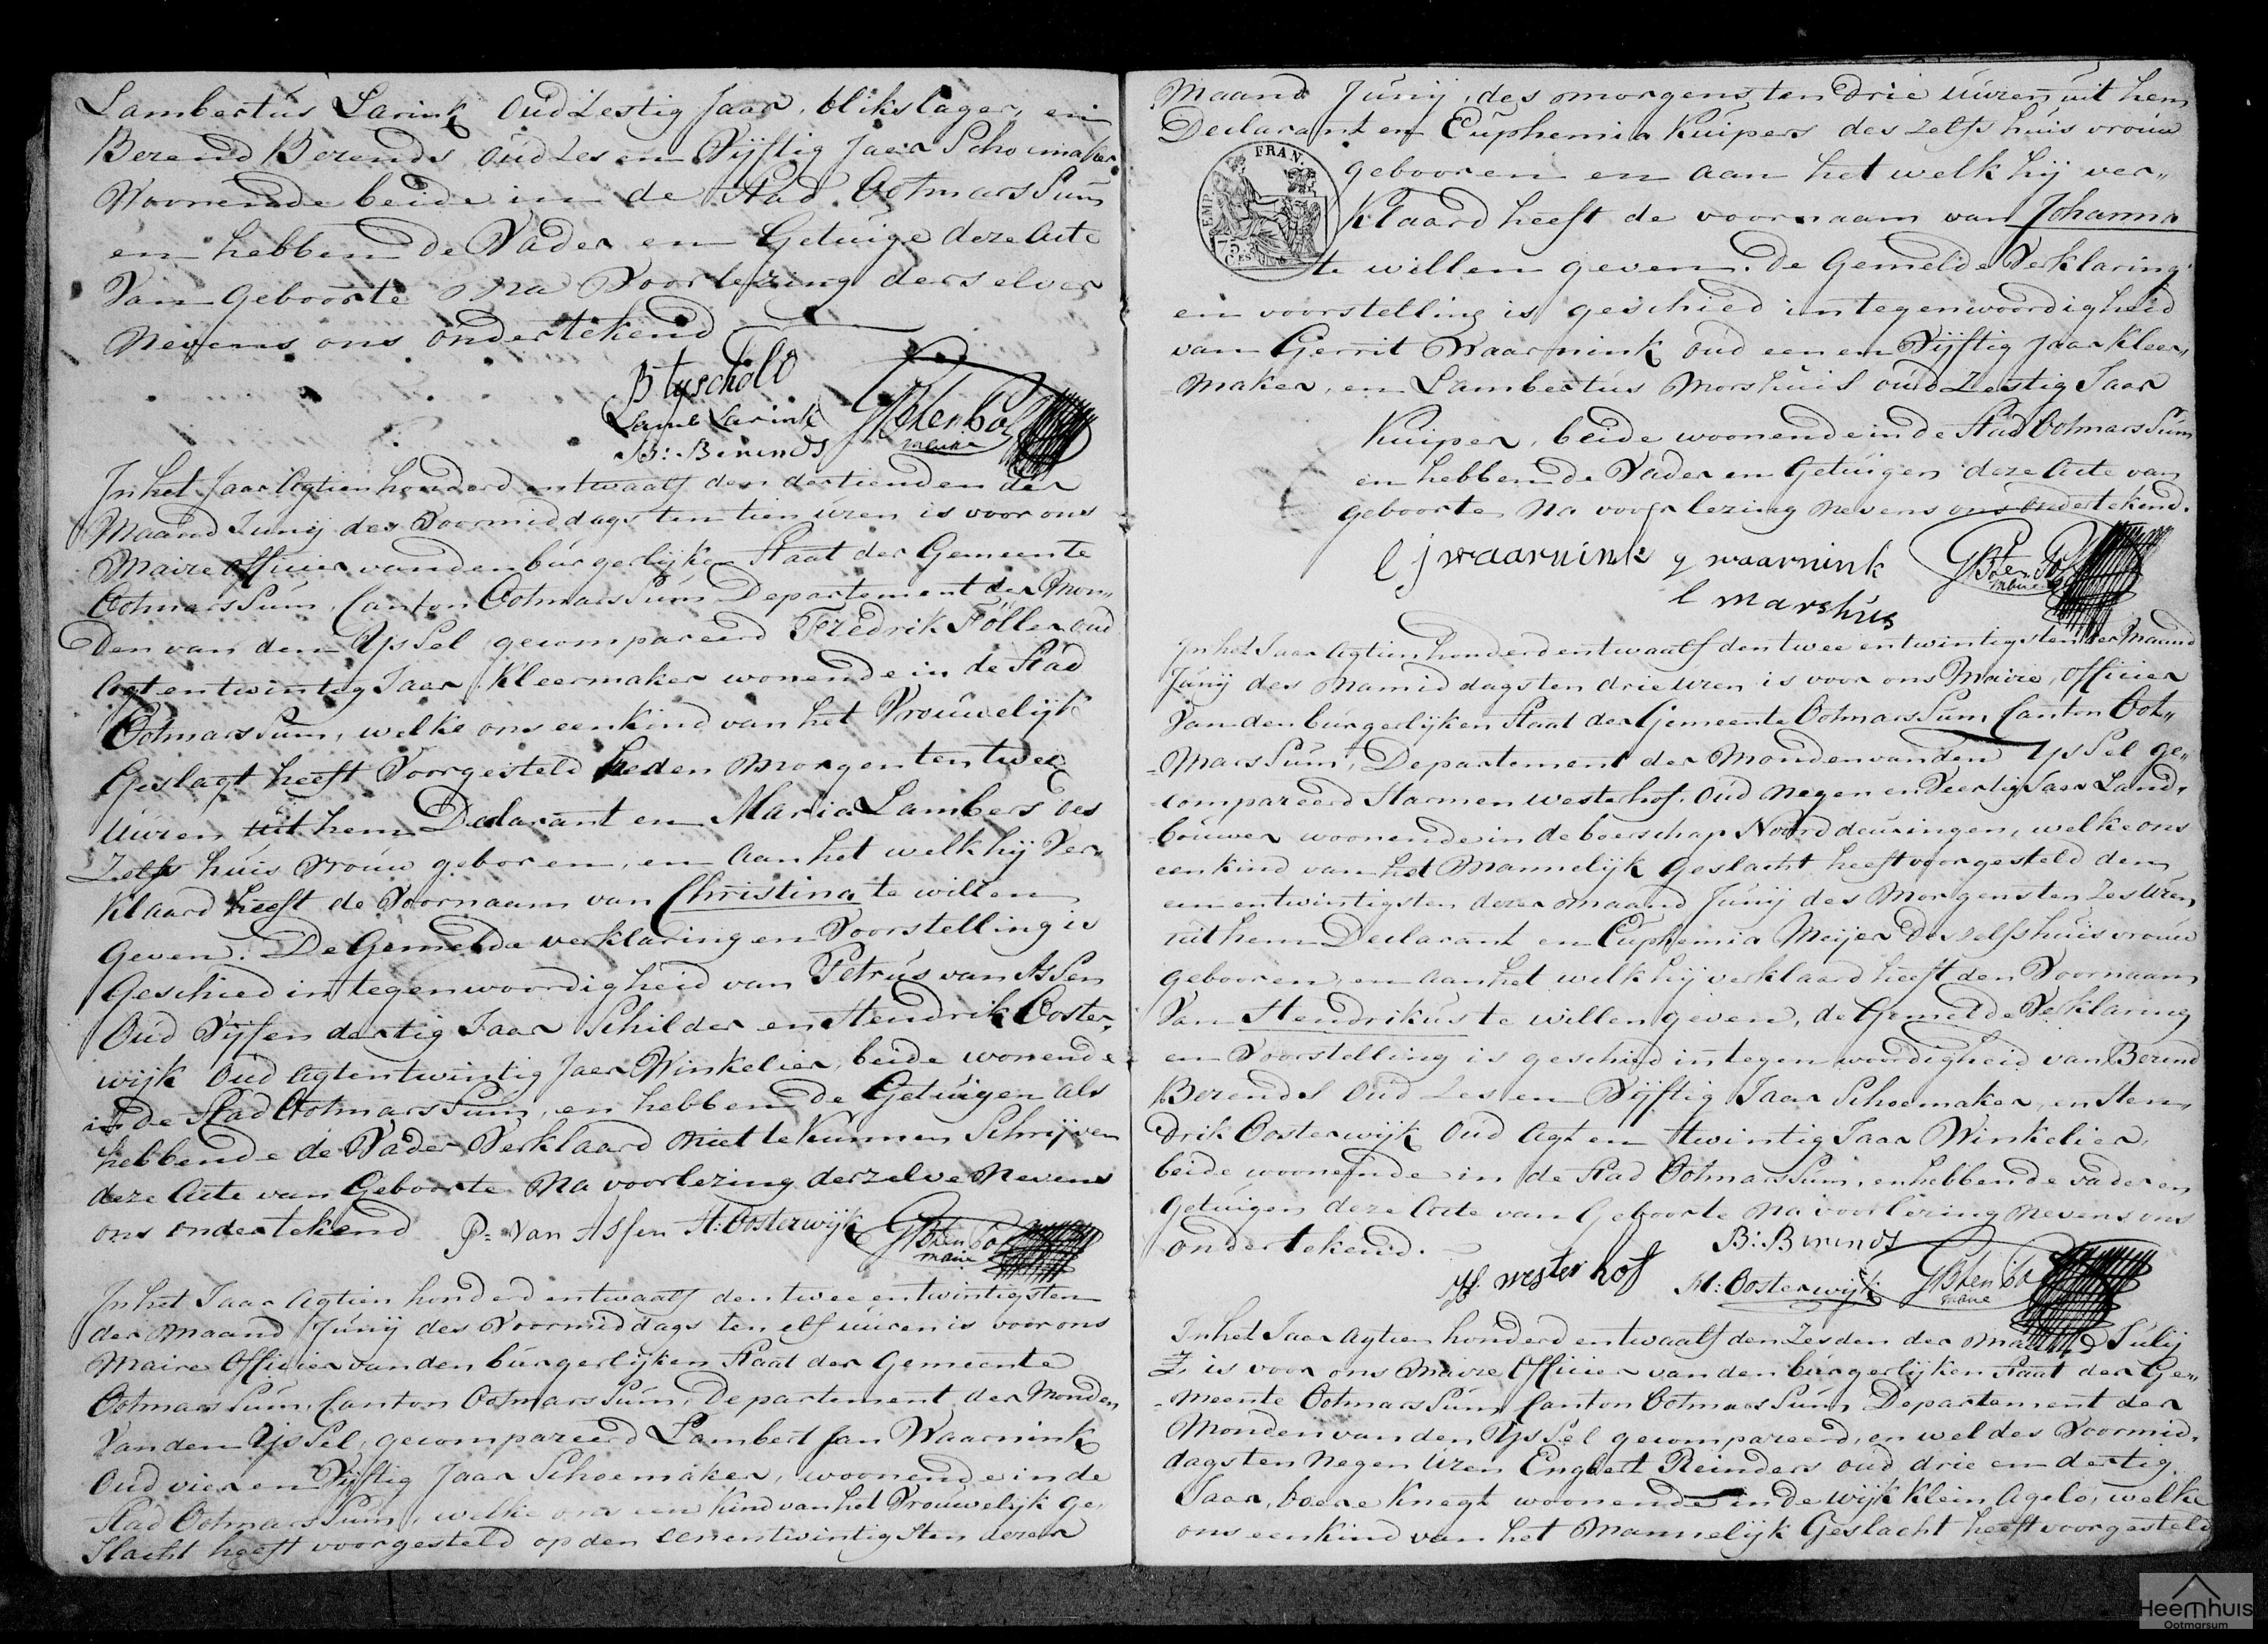 Lambertus Larink oud Zestig Jaar, blikslager, en
Berend Berends oud Zes en Vijftig Jaar Schoemaker
Woonende beide in de Stad Ootmarssum
en hebben de Vader en Getuige deze Acte
Van Geboorte na Voorlezing derselver
Nevens ons ondertekend
B tyscholo
Lamb Larink
B: Berends
maire
In het Jaar Agtien honderd en twaalf den dertienden der
Maand Junij des Voormiddags ten tien uren is voor ons
Maire officier van den burgerlijke Staat der Gemeente
Ootmarssum, Canton Ootmarssum Departement der Mon„
Den van den Yssel gecompareerd Fredrik Föller oud
Agt en twintig Jaar Kleermaker wonende in de Stad
Ootmarssum, welke ons een Kind van het Vrouwelijk
Geslagt heeft Voorgesteld heden morgen ten twee
Uuren uit hem Declarant en Maria Lambers des
Zelfs huis vrouw geboren, en aan het welk hij Ver„
Klaard heeft de Voornaam van Christina te willen
Geven. De Gemelde verklaring en Voorstelling is
Geschied in tegenwoordigheid van Petrus van Assen
Oud Vijf en dertig Jaar Schilder en Hendrik Ooster„
wijk Oud Agt en twintig Jaer Winkelier, beide wonende
in de Stad Ootmarssum, en hebben de Getuigen als
hebbende de Vader Verklaard niet te Kunnen Schrijven
deze Acte van Geboorte Na voorlezing derzelve Nevens
ons ondertekend P. Van Assen H: Oosterwijk
maire
In het Jaar Agtien honderd en twaalf den twee en twintigsten
der Maand Junij des Voormiddags ten elf uuren is voor ons
Maire Officier van den burgerlijken Staat der Gemeente
Ootmarssum, Canton Ootmarssum, Departement der Monden
Van den Yssel, gecompareerd Lambert Jan Waarnink
Oud vier en Vijftig Jaar Schoemaker, woonende in de
Stad Ootmarssum, welke ons een Kind van het Vrouwelijk Ge„
Slacht heeft voorgesteld op den een en twintigsten dezer
Maand Junij, des morgens ten Drie uuren uit hem
Declarant en Euphemia Kuipers des zelfs huis vrouw
gebooren en aan het welk hij ver„
Klaard heeft de voornaam van Johanna
te willen geven. De Gemelde Verklaring
en voorstelling is geschied in tegenwoordigheid
van Gerrit Waarnink oud een en Vijftig Jaar Kleer„
maker, en Lambertus Morshuis oud Zestig Jaar
EMP. FRAN.
75
Kuiper, beide woonende in de Stad Ootmarssum
en hebben de Vader en Getuigen deze Acte van
geboorte Na voor lezing nevens ons ondertekend.
l j waarnink g waarnink
l marshus
maire
In het Jaar Agtien honderd en twaalf den twee en twintigsten der Maand
Junij des Namiddags ten drie uren is voor ons Maire, Officier
Van den burgerlijken Staat der Gemeente Ootmarssum Canton Oot„
Marssum, Departement der Monden van den Yssel ge„
compareerd Harmen westerhof. Oud Negen en Veertig Jaar Land„
bouwer woonende in de boerschap Noorddeuringen, welke ons
een kind van het Mannelijk Geslacht heeft voorgesteld den
een en twintigsten dezer maand Junij des Morgens ten Zes Uren
uit hem Declarant en Euphemia Meijer des selfs huis vrouw
gebooren, en aan het welk hij verklaard heeft den Voornaam
Van Hendrikus te willen geven, de Gemelde Verklaring
en Voorstelling is geschied in tegenwoordigheid van Berend
Berends Oud Zes en Vijftig Jaar Schoemaker, en Hen„
drik Oosterwijk Oud Agt en twintig Jaar Winkelier,
beide woonende in de Stad Ootmarssum, en hebben de vader en
Getuigen deze Acte van Geboorte Na voorlezing Nevens ons
Ondertekend.
B: Berends
H. westerhof H: Oosterwijk
maire
In het Jaar Agtien honderd en twaalf den Zesden der Maand Julij
is voor ons Maire Officier van den burgerlijken Staat der Ge„
meente Ootmarssum Canton Ootmarssum Departement der
Monden van den Yssel gecompareerd, en wel des Voormid„
dags ten Negen Uren Engbert Reinders oud drie en dertig
Jaar, boere Knegt woonende in de wijk Klein Agelo, welke
ons een kind van het Mannelijk Geslacht heeft voorgesteld
Heemhuis
Ootmarsum